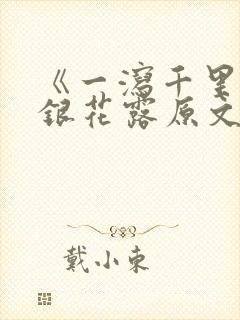 《一泻千里
银花露原文
戴小东